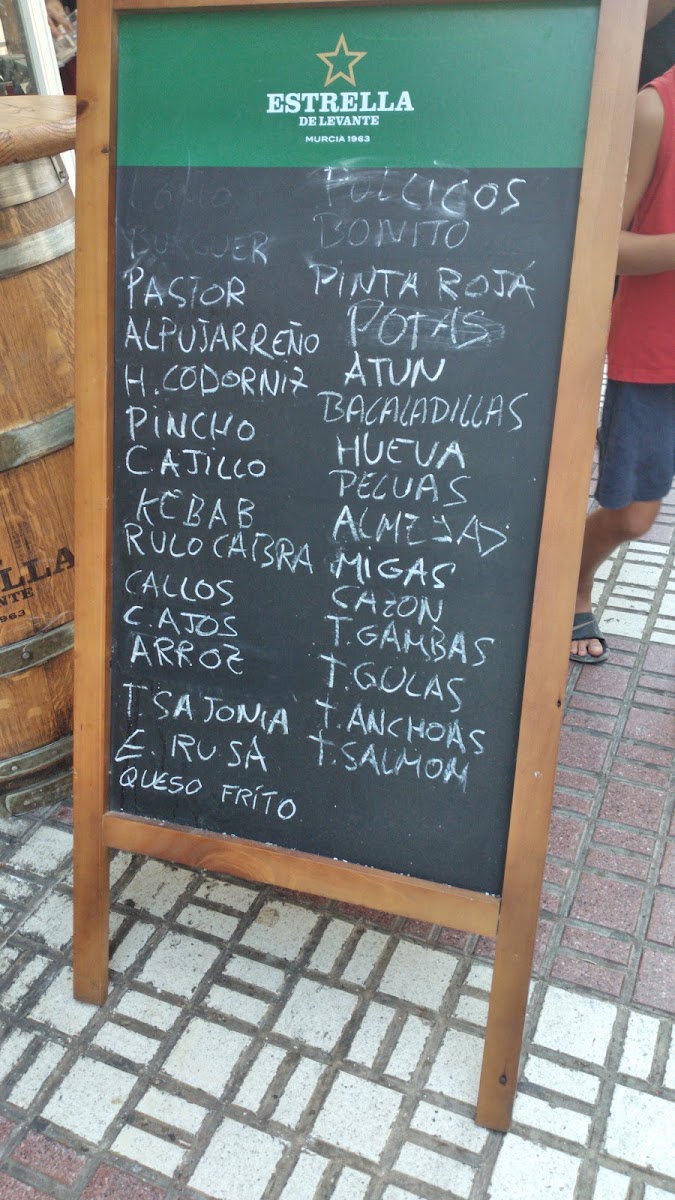 ESTRELLA
DE LEVANTE
MURCIA 1963
LOMO
BURGUER
PASTOR
ALPUJARREÑO
H. CODORNIZ
PINCHO
CAJILLO
KEBAB
RULO CABRA
CALLOS
C. AJOS
ARROZ
T. SAJONIA
E. RUSA
QUESO FRITO
BONITO
PINTA ROJA
POTAS
ATUN
BACALADILLAS
HUEVA
PELUAS
ALMEJAS
MIGAS
CAZON
T. GAMBAS
T. GULAS
T. ANCHOAS
T. SALMOM
LLA
NTE
963